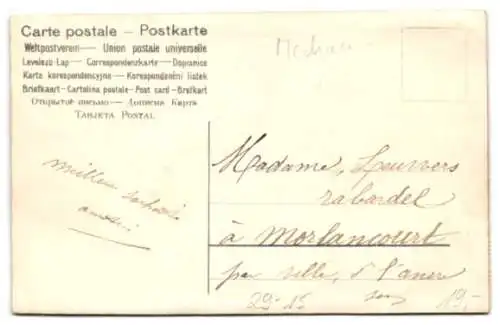 Carte postale – Postkarte
Weltpostverein — Union postale universelle
Levelező-Lap — Correspondenzkarte — Dopisnice
Karta korespondencyjna — Korespondenční lístek
Briefkaart — Cartolina postale — Post card — Brefkort
Открытое письмо — Дописна Карта
Tarjeta Postal
Madame
rabardel
à Morlancourt
par ville, s l'ancre
29-15
19,-